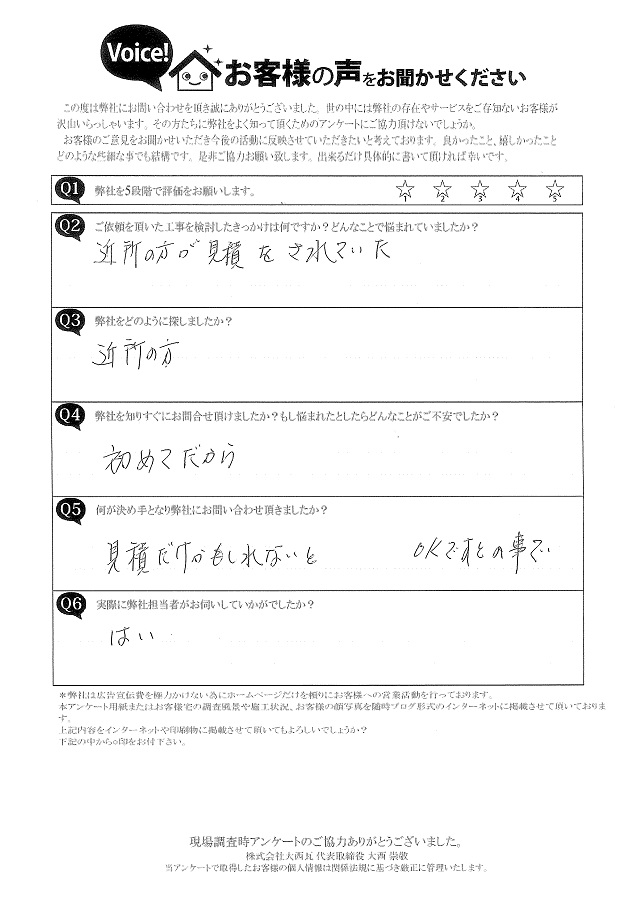 Voice!
お客様の声をお聞かせください
この度は弊社にお問い合わせを頂き誠にありがとうございました。世の中には弊社の存在やサービスをご存知ないお客様が
沢山いらっしゃいます。その方たちに弊社をよく知って頂くためのアンケートにご協力頂けないでしょうか。
お客様のご意見をお聞かせいただき今後の活動に反映させていただきたいと考えております。良かったこと、嬉しかったこと
どのような些細な事でも結構です。是非ご協力お願い致します。出来るだけ具体的に書いて頂ければ幸いです。
Q1 弊社を5段階で評価をお願いします。 1 2 3 4 5
Q2 ご依頼を頂いた工事を検討したきっかけは何ですか？どんなことで悩まれていましたか？
近所の方が見積をされていた
Q3 弊社をどのように探しましたか？
近所の方
Q4 弊社を知りすぐにお問合せ頂けましたか？もし悩まれたとしたらどんなことがご不安でしたか？
初めてだから
Q5 何が決め手となり弊社にお問い合わせ頂きましたか？
見積だけかもしれないと OKですとの事で
Q6 実際に弊社担当者がお伺いしていかがでしたか？
はい
＊弊社は広告宣伝費を極力かけない為にホームページだけを頼りにお客様への営業活動を行っております。
本アンケート用紙またはお客様宅の調査風景や施工状況、お客様の顔写真を随時ブログ形式のインターネットに掲載させて頂いておりま
す。
上記内容をインターネットや印刷物に掲載させて頂いてもよろしいでしょうか？
下記の中から○印をお付下さい。
現場調査時アンケートのご協力ありがとうございました。
株式会社大西瓦 代表取締役 大西 崇敬
当アンケートで取得したお客様の個人情報は関係法規に基づき厳正に管理いたします。